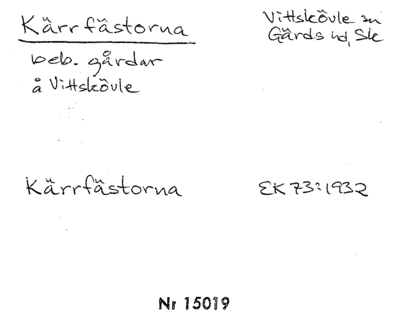 Kärrfästorna
Vittskövle sn
Gärds hd, Sk
beb. gårdar
å Vittskövle
Kärrfästorna
EK 73:1932
Nr 15019